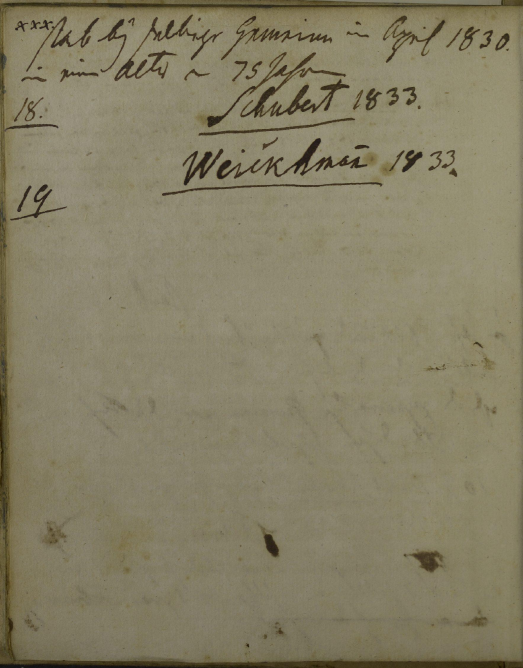 xxx. starb bey selbiger Gemeine im April 1830.
in einem alter v 75 Jahren
18. Schubert 1833.
Weickhman̄ 1833.
19